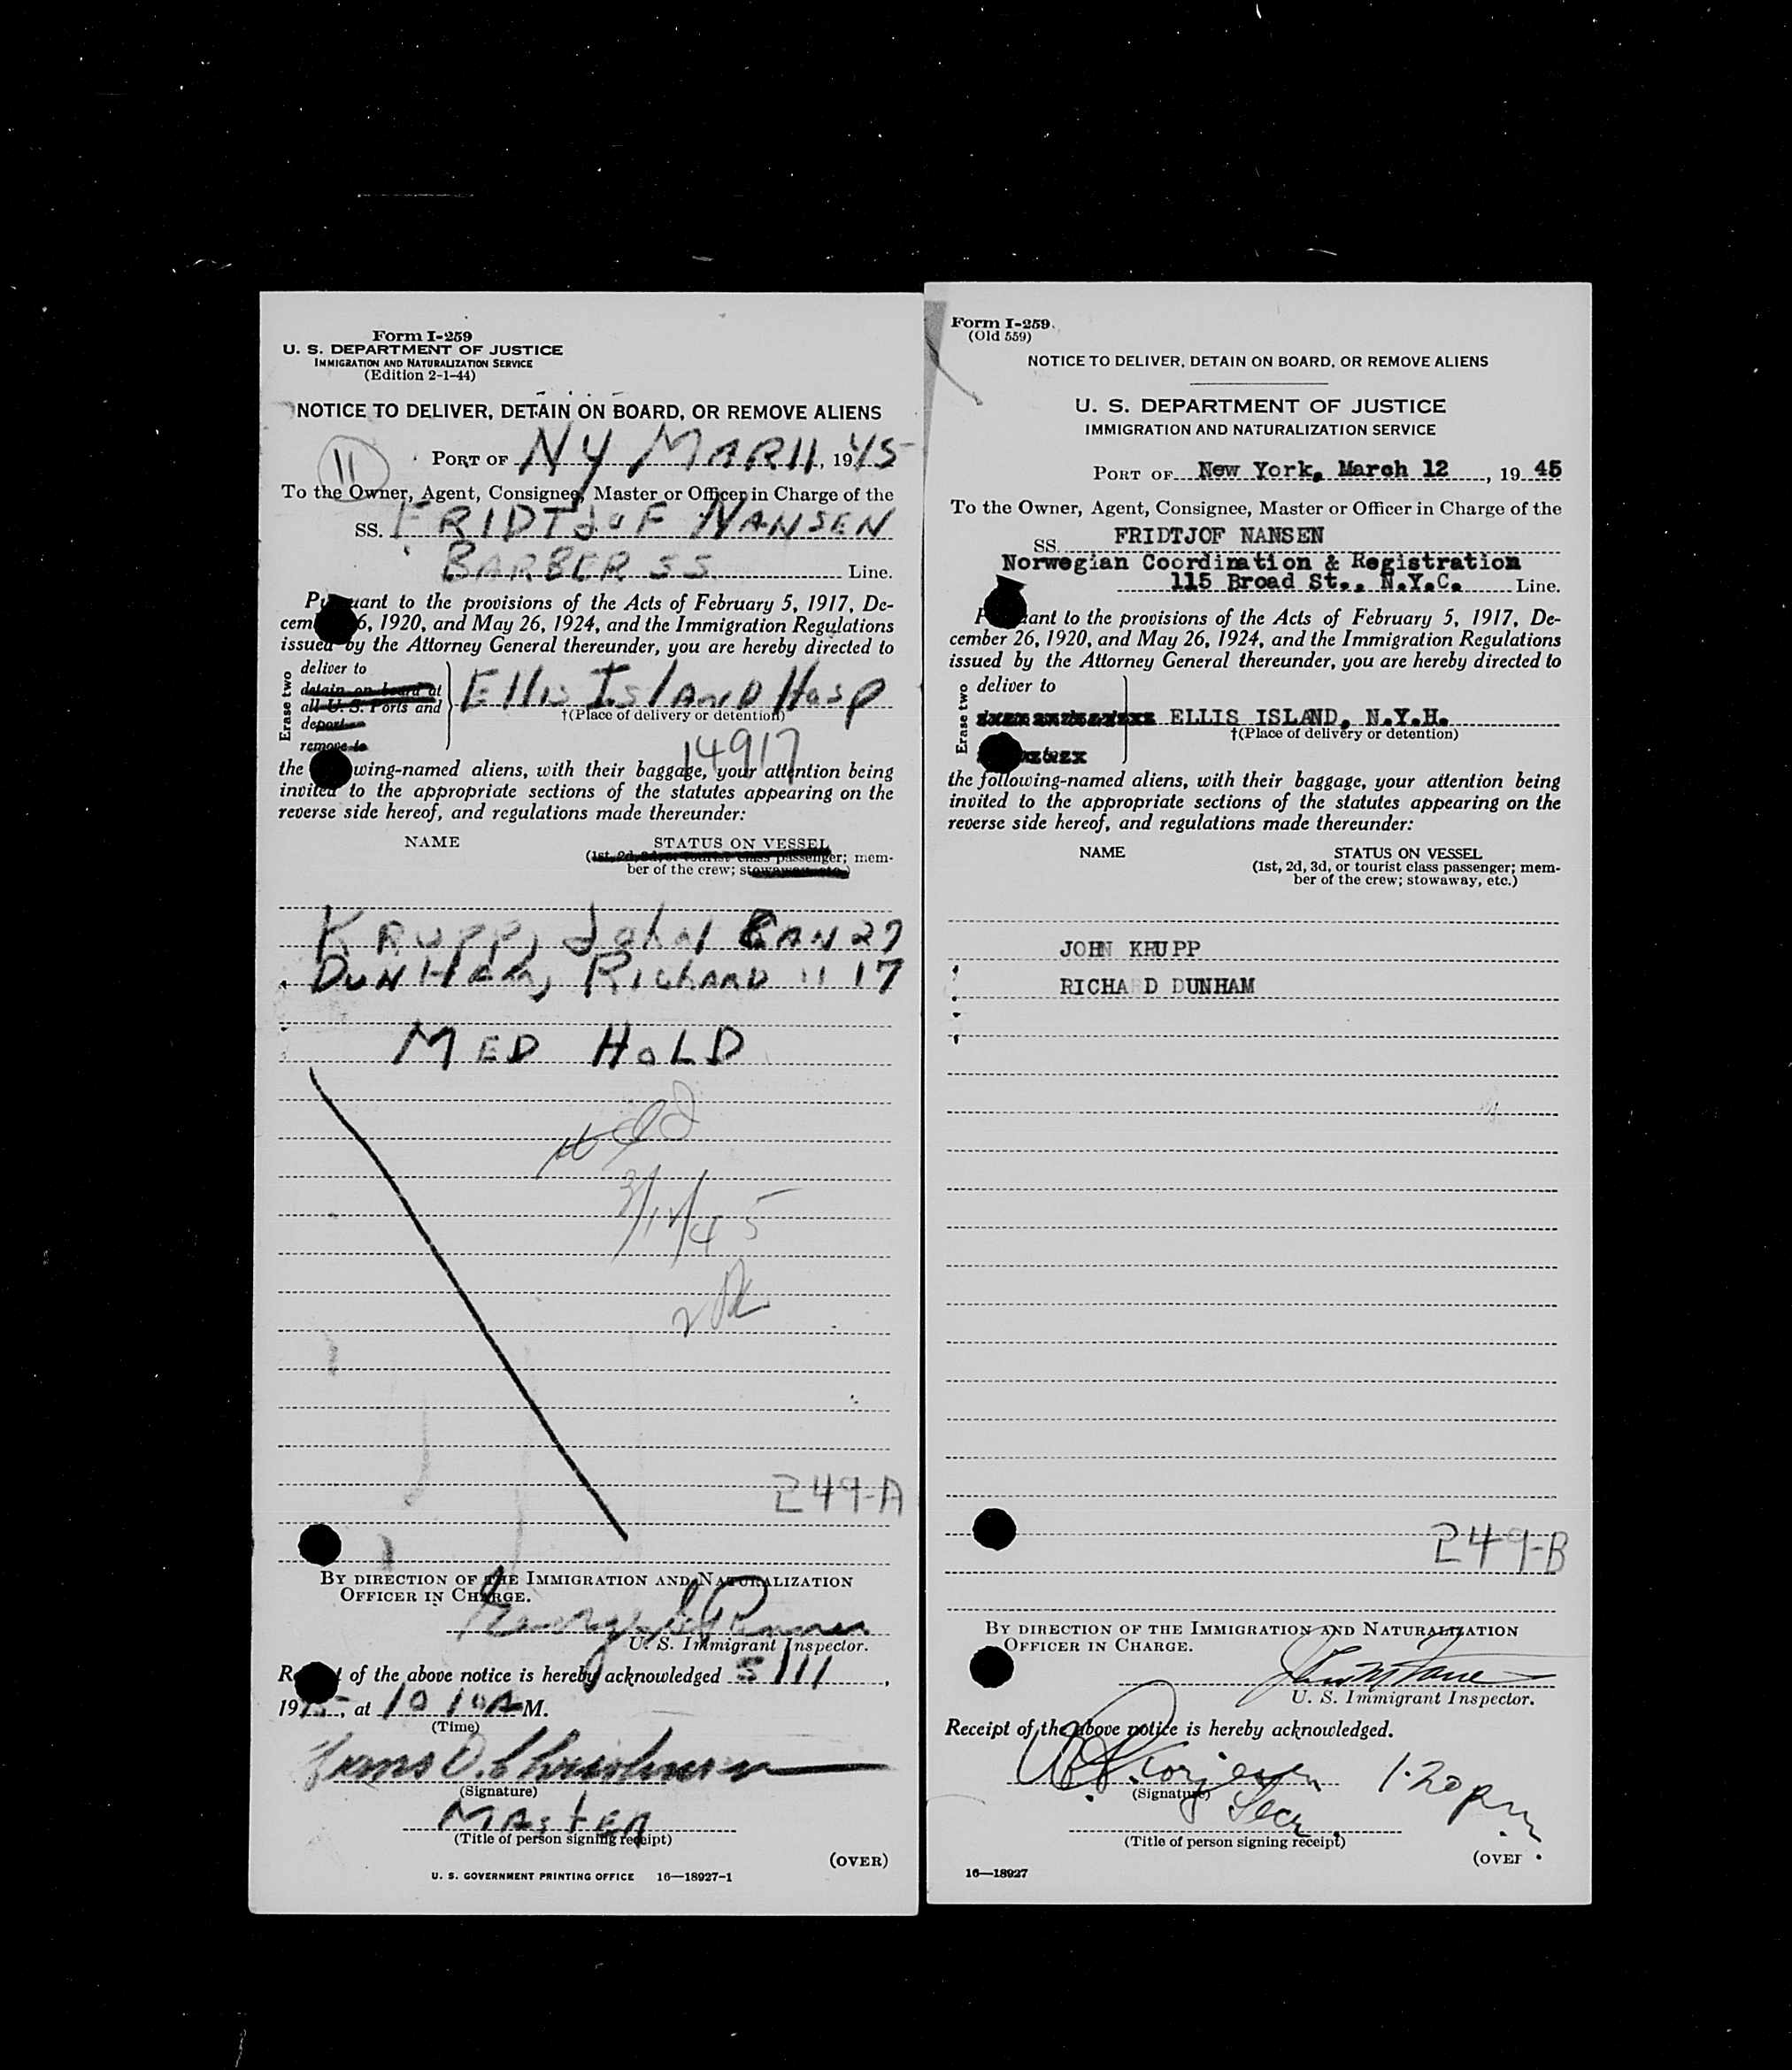 Form I-259
U. S. DEPARTMENT OF JUSTICE
IMMIGRATION AND NATURALIZATION SERVICE
(Edition 2-1-44)
NOTICE TO DELIVER, DETAIN ON BOARD, OR REMOVE ALIENS
11
PORT OF NY MAR 11, 1945
To the Owner, Agent, Consignee, Master or Officer in Charge of the
SS. FRIDTJOF NANSEN
BARBER SS Line.
Pursuant to the provisions of the Acts of February 5, 1917, De-
cember 26, 1920, and May 26, 1924, and the Immigration Regulations
issued by the Attorney General thereunder, you are hereby directed to
Erase two
deliver to
detain on board at
all U. S. Ports and
deport
remove to
Ellis Island Hosp
†(Place of delivery or detention)
14917
the following-named aliens, with their baggage, your attention being
invited to the appropriate sections of the statutes appearing on the
reverse side hereof, and regulations made thereunder:
NAME STATUS ON VESSEL
(1st, 2d, 3d, or tourist class passenger; mem-
ber of the crew; stowaway, etc.)
KRUPP, John CAN 27
DUNHAM, RICHARD " 17
MED HOLD
249-A
BY DIRECTION OF THE IMMIGRATION AND NATURALIZATION
OFFICER IN CHARGE.
U. S. Immigrant Inspector.
Receipt of the above notice is hereby acknowledged 3/11,
1945, at 10 10 A M.
(Time)
(Signature)
MASTER
(Title of person signing receipt)
(OVER)
U. S. GOVERNMENT PRINTING OFFICE 16—18927-1
Form I-259
(Old 559)
NOTICE TO DELIVER, DETAIN ON BOARD, OR REMOVE ALIENS
U. S. DEPARTMENT OF JUSTICE
IMMIGRATION AND NATURALIZATION SERVICE
PORT OF New York, March 12, 1945
To the Owner, Agent, Consignee, Master or Officer in Charge of the
SS. FRIDTJOF NANSEN
Norwegian Coordination & Registration
115 Broad St., N.Y.C. Line.
Pursuant to the provisions of the Acts of February 5, 1917, De-
cember 26, 1920, and May 26, 1924, and the Immigration Regulations
issued by the Attorney General thereunder, you are hereby directed to
Erase two
deliver to
ELLIS ISLAND, N.Y.H.
†(Place of delivery or detention)
the following-named aliens, with their baggage, your attention being
invited to the appropriate sections of the statutes appearing on the
reverse side hereof, and regulations made thereunder:
NAME STATUS ON VESSEL
(1st, 2d, 3d, or tourist class passenger; mem-
ber of the crew; stowaway, etc.)
JOHN KRUPP
RICHARD DUNHAM
249-B
BY DIRECTION OF THE IMMIGRATION AND NATURALIZATION
OFFICER IN CHARGE.
U. S. Immigrant Inspector.
Receipt of the above notice is hereby acknowledged.
1.20 pm
(Signature)
Secr.
(Title of person signing receipt)
(OVER
16—18927